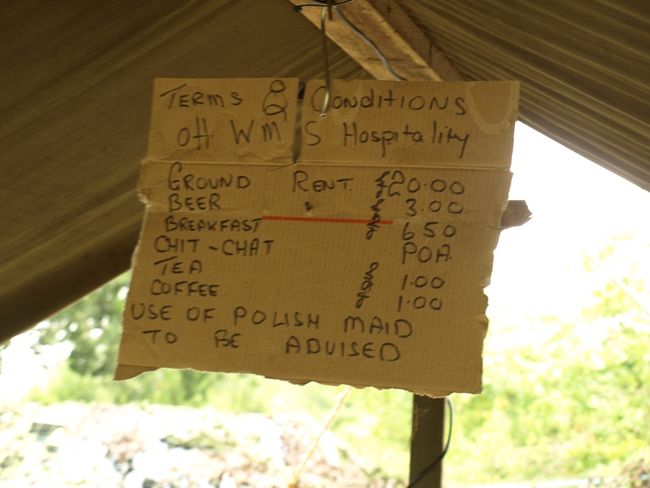 TERMS & CONDITIONS
off WM'S Hospitality
GROUND RENT £20.00
BEER £ 3.00
BREAKFAST £ 6 50
CHIT-CHAT POA
TEA £ 1.00
COFFEE £ 1.00
USE OF POLISH MAID
TO BE ADVISED